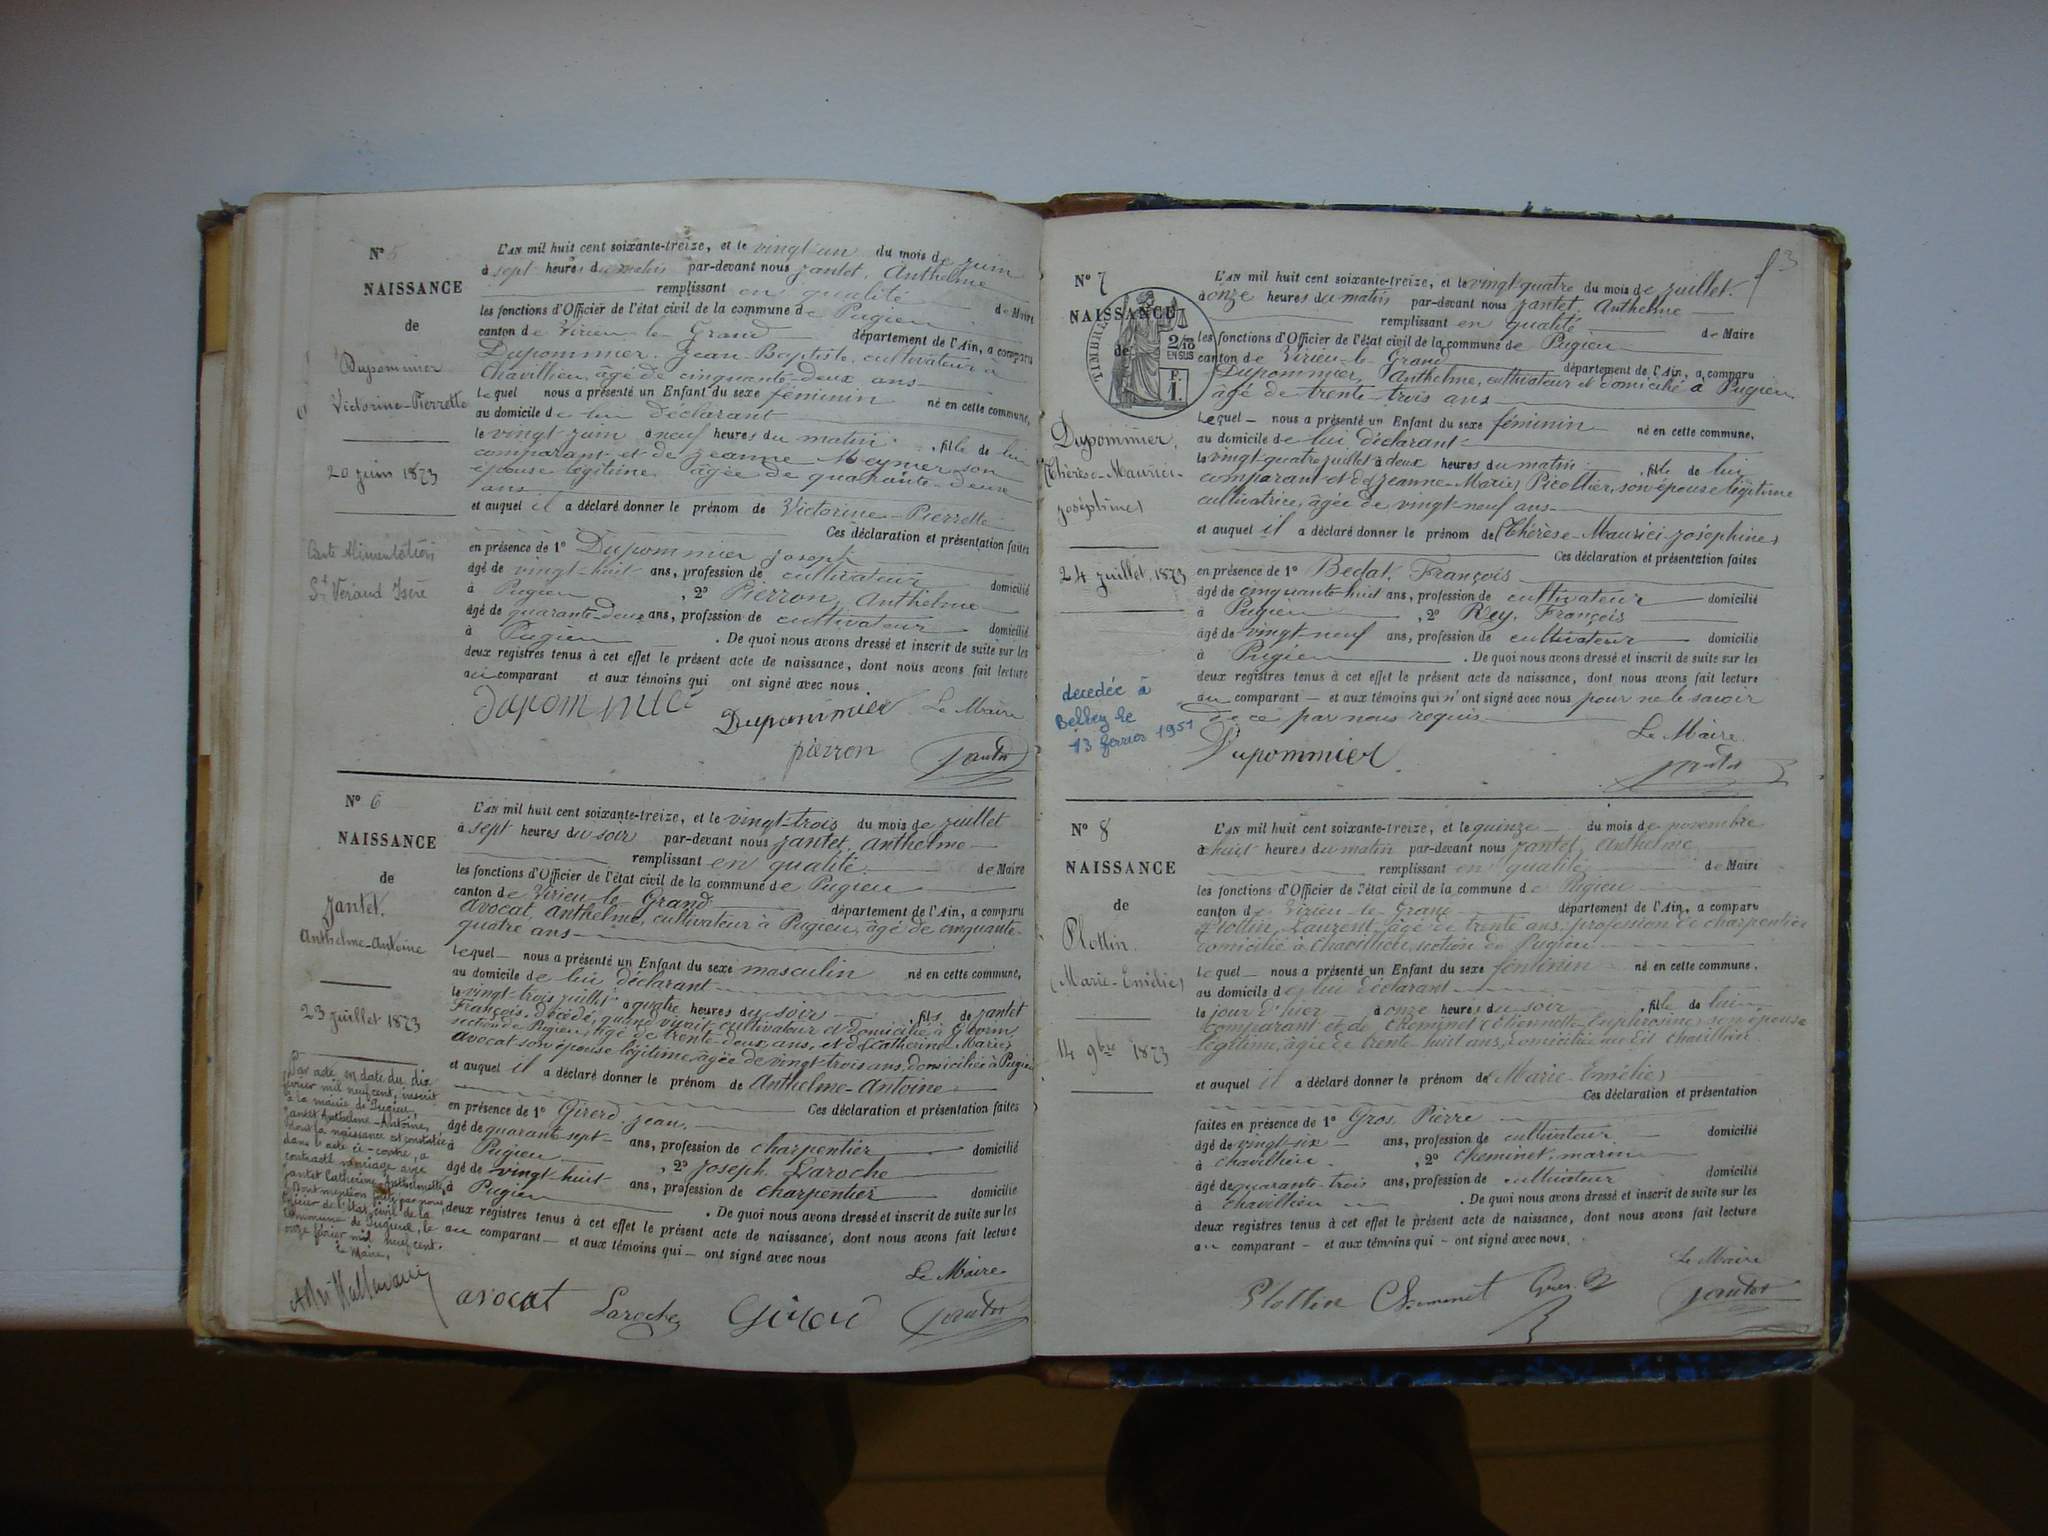 N° 5
NAISSANCE
de
Dupommier
Victorine-Pierrette
20 juin 1873
Carte Alimentation
St Vérand Isère
L'AN mil huit cent soixante-treize, et le vingt-un du mois de juin
à sept heures du matin par-devant nous Jantet, Anthelme
remplissant en qualité de Maire
les fonctions d'Officier de l'état civil de la commune de Pugieu
canton de Virieu-le-Grand département de l'Ain, a comparu
Dupommier, Jean-Baptiste, cultivateur à
Chavillieu, âgé de cinquante-deux ans
Lequel nous a présenté un Enfant du sexe féminin né en cette commune,
au domicile de lui déclarant
le vingt juin à neuf heures du matin, fille de lui
comparant et de Jeanne Meynier son
épouse légitime âgée de quarante-deux
ans
et auquel il a déclaré donner le prénom de Victorine-Pierrette
Ces déclaration et présentation faites
en présence de 1° Dupommier Joseph
âgé de vingt-huit ans, profession de cultivateur domicilié
à Pugieu, 2° Pierron, Anthelme
âgé de quarante-deux ans, profession de cultivateur domicilié
à Pugieu. De quoi nous avons dressé et inscrit de suite sur les
deux registres tenus à cet effet le présent acte de naissance, dont nous avons fait lecture
au comparant et aux témoins qui ont signé avec nous
Dupommier Le Maire
pierron Jantet
N° 6
NAISSANCE
de
Jantet.
Anthelme-Antoine
23 juillet 1873
Par acte en date du dix
février mil neuf cent, inscrit
à la mairie de Pugieu,
Jantet Anthelme-Antoine,
dont la naissance est constatée
dans l'acte ci-contre, a
contracté mariage avec
Jantet Catherine Anthelmette
Dont mention faite par nous
Officier de l'état civil de la
commune de Pugieu, le
onze février mil neuf cent.
Le Maire,
L'AN mil huit cent soixante-treize, et le vingt-trois du mois de juillet
à sept heures du soir par-devant nous Jantet, Anthelme
remplissant en qualité de Maire
les fonctions d'Officier de l'état civil de la commune de Pugieu
canton de Virieu-le-Grand département de l'Ain, a comparu
Avocat, Anthelme, cultivateur à Pugieu, âgé de cinquante-
quatre ans
Lequel nous a présenté un Enfant du sexe masculin né en cette commune,
au domicile de lui déclarant
le vingt-trois juillet à quatre heures du soir, fils de Jantet
François, décédé, quand vivait cultivateur et domicilié à
section de Pugieu, âgé de trente-deux ans, et de Catherine-Marie
Avocat son épouse légitime, âgée de vingt-trois ans, domiciliée à Pugieu
et auquel il a déclaré donner le prénom de Anthelme-Antoine
Ces déclaration et présentation faites
en présence de 1° Girerd Jean,
âgé de quarante-sept ans, profession de charpentier domicilié
à Pugieu, 2° Joseph Laroche
âgé de vingt-huit ans, profession de charpentier domicilié
à Pugieu. De quoi nous avons dressé et inscrit de suite sur les
deux registres tenus à cet effet le présent acte de naissance, dont nous avons fait lecture
au comparant et aux témoins qui ont signé avec nous
Le Maire
avocat Laroche Girerd Jantet
53
N° 7
NAISSANCE
de
TIMBRE
2/10
EN SUS
F.
1.
Dupommier,
Thérèse-Maurici-
Joséphine
24 juillet 1873
décédée à
Belley le
13 février 1951
L'AN mil huit cent soixante-treize, et le vingt-quatre du mois de juillet
à onze heures du matin par-devant nous Jantet, Anthelme
remplissant en qualité de Maire
les fonctions d'Officier de l'état civil de la commune de Pugieu
canton de Virieu-le-Grand département de l'Ain, a comparu
Dupommier, Anthelme, cultivateur et domicilié à Pugieu
âgé de trente-trois ans
Lequel nous a présenté un Enfant du sexe féminin né en cette commune,
au domicile de lui déclarant
le vingt-quatre juillet à deux heures du matin, fille de lui
comparant et de Jeanne-Marie Picollier, son épouse légitime
cultivatrice, âgée de vingt-neuf ans
et auquel il a déclaré donner le prénom de Thérèse-Maurici-Joséphine
Ces déclaration et présentation faites
en présence de 1° Bedat, François
âgé de cinquante-huit ans, profession de cultivateur domicilié
à Pugieu, 2° Rey, François
âgé de vingt-neuf ans, profession de cultivateur domicilié
à Pugieu. De quoi nous avons dressé et inscrit de suite sur les
deux registres tenus à cet effet le présent acte de naissance, dont nous avons fait lecture
au comparant et aux témoins qui n'ont signé avec nous pour ne le savoir
de ce par nous requis
Le Maire
Dupommier Jantet
N° 8
NAISSANCE
de
Plottin.
Marie-Emélie
14 9bre 1873
L'AN mil huit cent soixante-treize, et le quinze du mois de novembre
à huit heures du matin par-devant nous Jantet, Anthelme
remplissant en qualité de Maire
les fonctions d'Officier de l'état civil de la commune de Pugieu
canton de Virieu-le-Grand département de l'Ain, a comparu
Plottin, Laurent, âgé de trente ans, profession de charpentier
domicilié à Chavillieu, section de Pugieu
Lequel nous a présenté un Enfant du sexe féminin né en cette commune,
au domicile de lui déclarant
le jour d'hier à onze heures du soir, fille de lui
comparant et de Cheminet Etiennette-Euphrosine son épouse
légitime, âgée de trente-huit ans, domiciliée au dit Chavillieu
et auquel il a déclaré donner le prénom de Marie-Emélie
Ces déclaration et présentation
faites en présence de 1° Gros, Pierre
âgé de vingt-six ans, profession de cultivateur domicilié
à Chavillieu, 2° Cheminet, marin
âgé de quarante-trois ans, profession de cultivateur domicilié
à Chavillieu. De quoi nous avons dressé et inscrit de suite sur les
deux registres tenus à cet effet le présent acte de naissance, dont nous avons fait lecture
au comparant et aux témoins qui ont signé avec nous.
Le Maire
Plottin Cheminet Gros Jantet